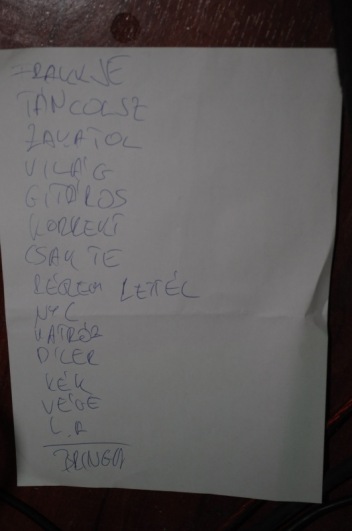 TÁNCOLSZ
ZAKATOL
VILÁG
GITÁROS
KORREKT
CSAK TE
RÉGEN LETTÉL
NYC
MATRÓZ
DÍLER
KÉK
VÉGE
L.A
BRINGA